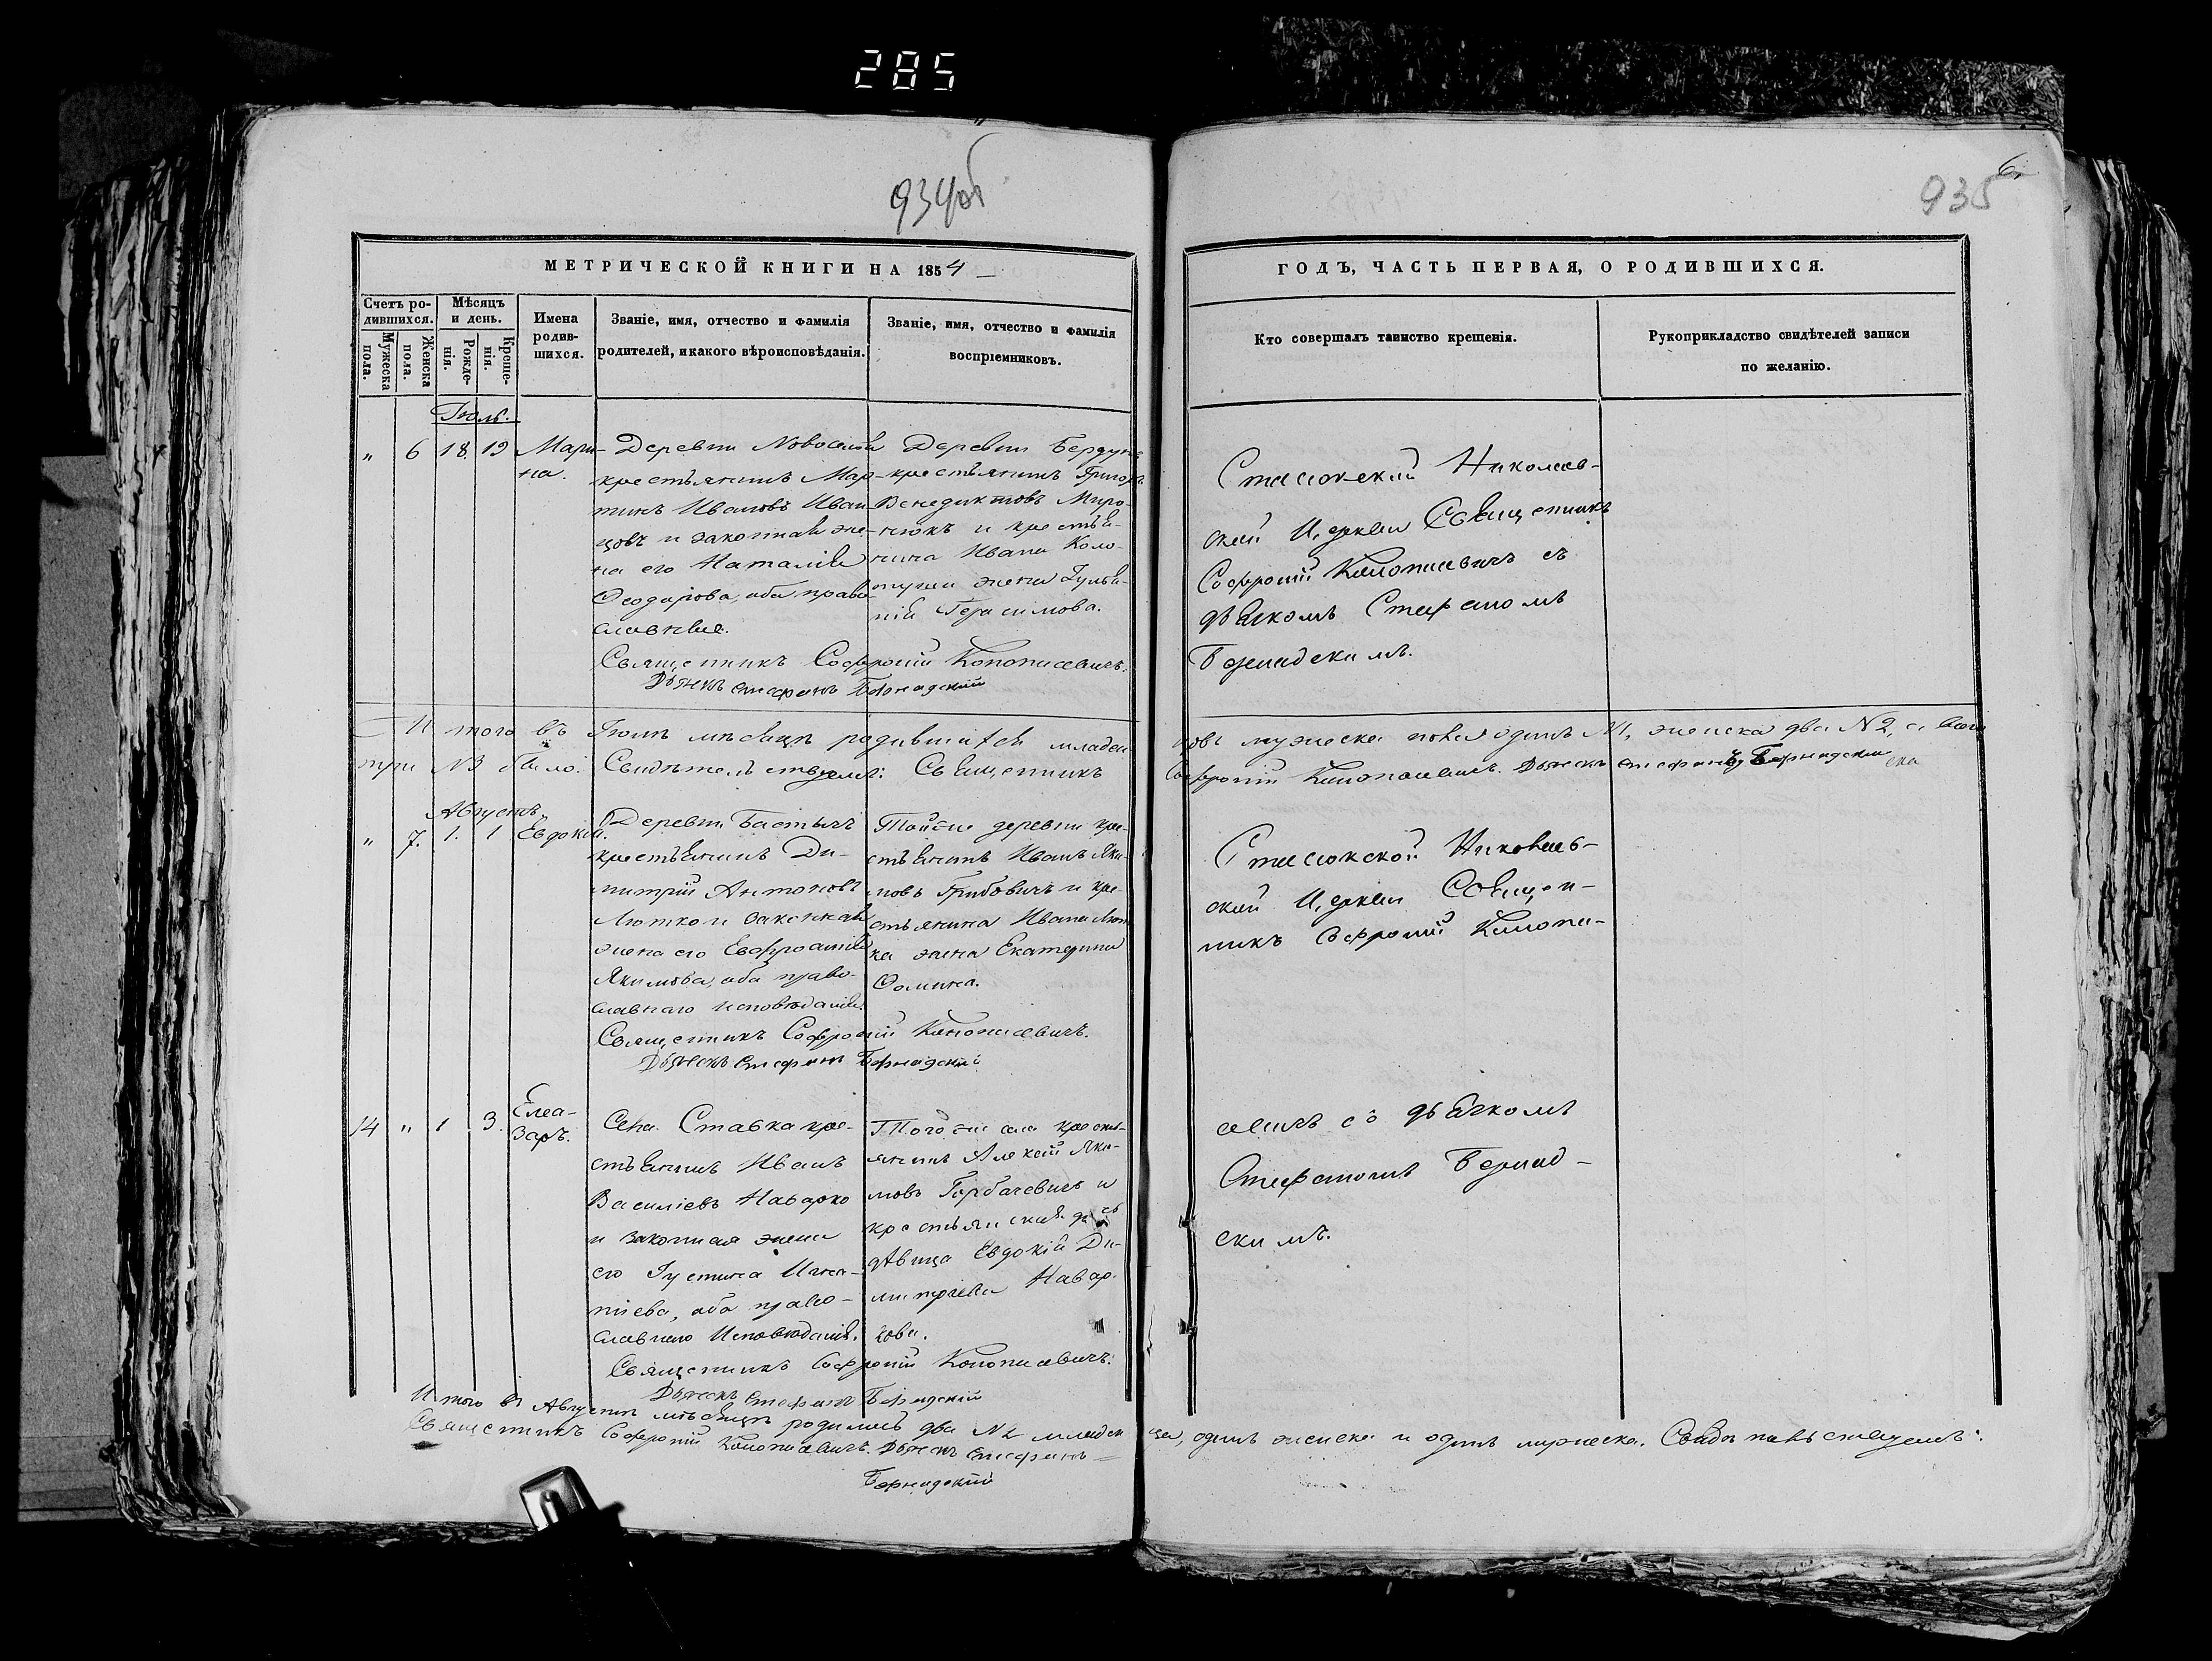 285
934об
935
6.
МЕТРИЧЕСКОЙ КНИГИ НА 1854
ГОДЪ, ЧАСТЬ ПЕРВАЯ, О РОДИВШИХСЯ.
Счетъ ро-
дившихся.
Мужеска
пола.
Женска
пола.
Мѣсяцъ
и день.
Рожде-
нія.
Креще-
нія.
Имена
родив-
шихся.
Званіе, имя, отчество и фамилія
родителей, и какого вѣроисповѣданія.
Званіе, имя, отчество и фамилія
воспріемниковъ.
Кто совершалъ таинство крещенія.
Рукоприкладство свидѣтелей записи
по желанію.
Іюль.
„ 6 18. 19 Мари-
на.
Деревни
крестьянинъ Мар-
тинъ Ивановъ Иван-
цовъ и законная же-
на его Наталія
Ѳеодорова, оба право-
славные.
Священникъ Софроній Конопасевичъ.
Дьячекъ Стефанъ Бернадскій
Деревни
крестьянинъ Григор.
Венедиктовъ Миро-
нюкъ и крестья-
нина Ивана Коло-
жена Гульян-
нія Герасимова.
Стасюкской Николаев-
ской Церкви Священникъ
Софроній Конопасевичъ съ
дьячкомъ Стефаномъ
Бернадскимъ.
Итого въ Іюлѣ мѣсяцѣ родившихся младен-
цовъ мужеска пола одинъ №1, женска два №2, а всего
три №3 было. Свидѣтельствуемъ: Священникъ
Софроній Конопасевичъ. Дьячекъ Стефанъ Бернадскій
Августъ.
„ 7. 1. 1 Евдокія.
Деревни Бастычъ
крестьянинъ Ди-
митрій Антоновъ
Лютко и законная
жена его Евфросинія
Якимова, оба право-
славнаго исповѣданія.
Священникъ Софроній Конопасевичъ.
Дьячекъ Стефанъ Бернадскій
Той же деревни кре-
стьянинъ Иванъ Яки-
мовъ Грибовичъ и кре-
стьянина Ивана Лют-
ка жена Екатерина
Ѳомина.
Стасюкской Николаев-
ской Церкви Священ-
никъ Софроній Конопа-
14 „ 1 3. Елеа-
заръ.
Села Ставка кре-
стьянинъ Иванъ
Василіевъ Наварко
и законная жена
его Іустина Игна-
тіева, оба право-
славнаго Исповѣданія.
Священникъ Софроній Конопасевичъ.
Дьячекъ Стефанъ Бернадскій
Того же села кресть-
янинъ Алексій Яки-
мовъ Горбачевичъ и
крестьянская дочь
дѣвица Евдокія Ди-
митріева Навар-
кова.
севичъ съ дьячкомъ
Стефаномъ Бернад-
скимъ.
Итого въ Августѣ мѣсяцѣ родилось два №2 младен-
ца, одинъ женска и одинъ мужеска. Свидѣтельствуемъ:
Священникъ Софроній Конопасевичъ. Дьячекъ Стефанъ
Бернадскій